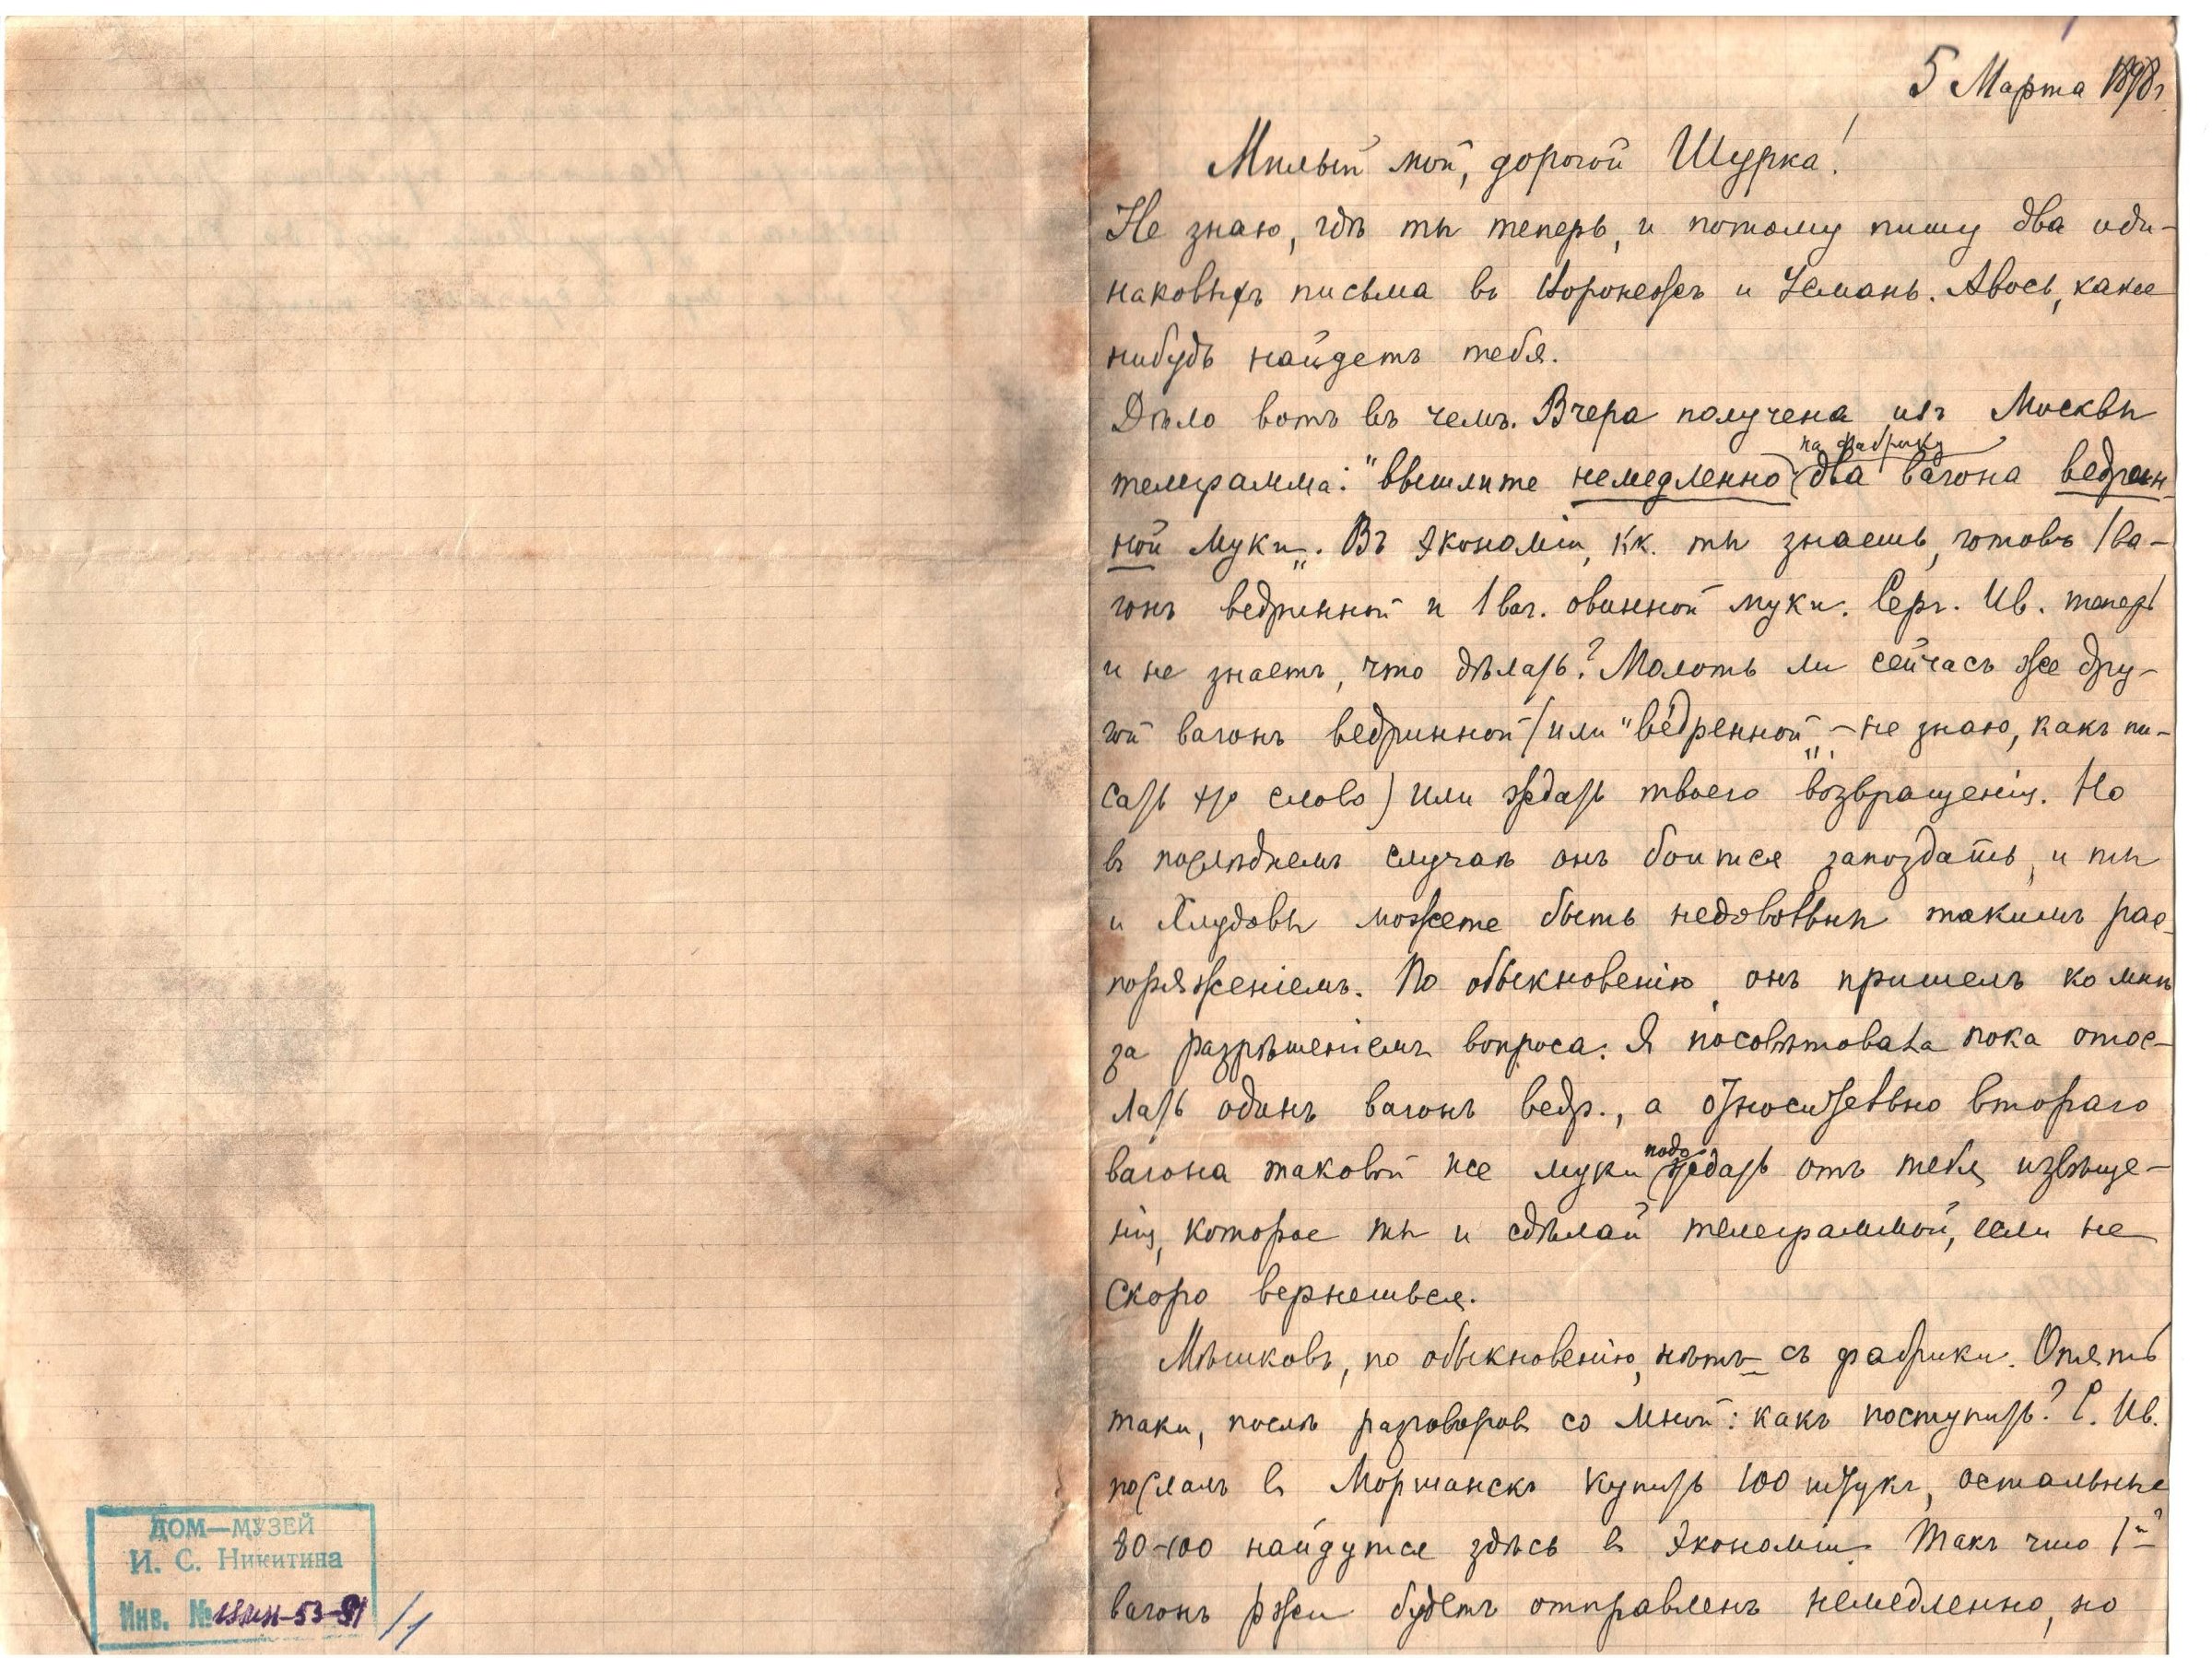 ДОМ—МУЗЕЙ
И. С. Никитина
Инв. № 53-91/1
5 Марта 1898 г.
Милый мой, дорогой Шурка!
Не знаю, гдѣ ты теперь, и потому пишу два оди-
наковыхъ письма въ Воронежъ и Усмань. Авось, какое
нибудь найдетъ тебя.
Дѣло вотъ въ чемъ. Вчера получена изъ Москвы
на фабрику
телеграмма: "вышлите немедленно два вагона ведрен-
ной муки". Въ экономіи, кк. ты знаешь, готовъ 1 ва-
гонъ ведринной и 1 ваг. овинной муки. Серг. Ив. теперь
и не знаетъ, что дѣлать? Молоть ли сейчасъ же дру-
гой вагонъ ведринной (или "вёдренной" – не знаю, какъ пи-
сать это слово) или ждать твоего возвращенія. Но
въ послѣднемъ случаѣ онъ боится запоздать, и ты
и Хлудовы можете быть недовольны такимъ рас-
поряженіемъ. По обыкновенію, онъ пришелъ ко мнѣ
за разрѣшеніемъ вопроса. Я посовѣтовала пока отос-
лать одинъ вагонъ ведр., а относительно второго
вагона таковой же муки подождать отъ тебя извѣще-
нія, которое ты и сдѣлай телеграммой, если не
скоро вернешься.
Мѣшковъ, по обыкновенію, нѣтъ съ фабрики. Опять
таки, послѣ разговоровъ со мной: какъ поступить? С. Ив.
послалъ въ Моршанскъ купить 100 штукъ, остальные
80-100 найдутся здѣсь въ экономіи. Такъ что 1й
вагонъ ржи будетъ отправленъ немедленно, но